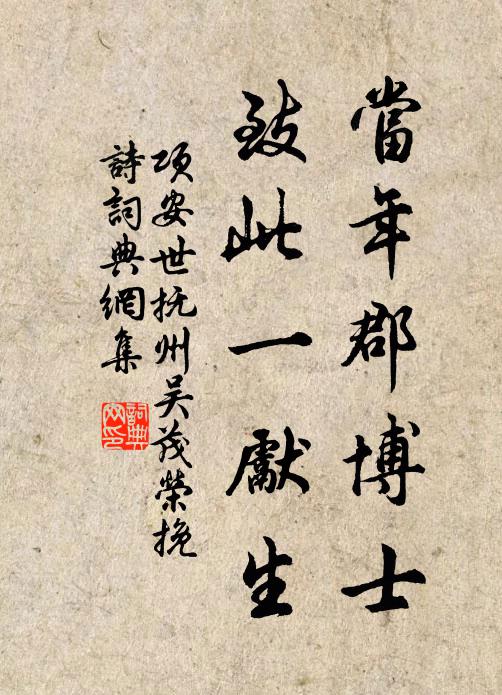 當年郡博士
致此一獻生
項安世抚州吴茂榮挽
詩詞典網集
詞典
网印